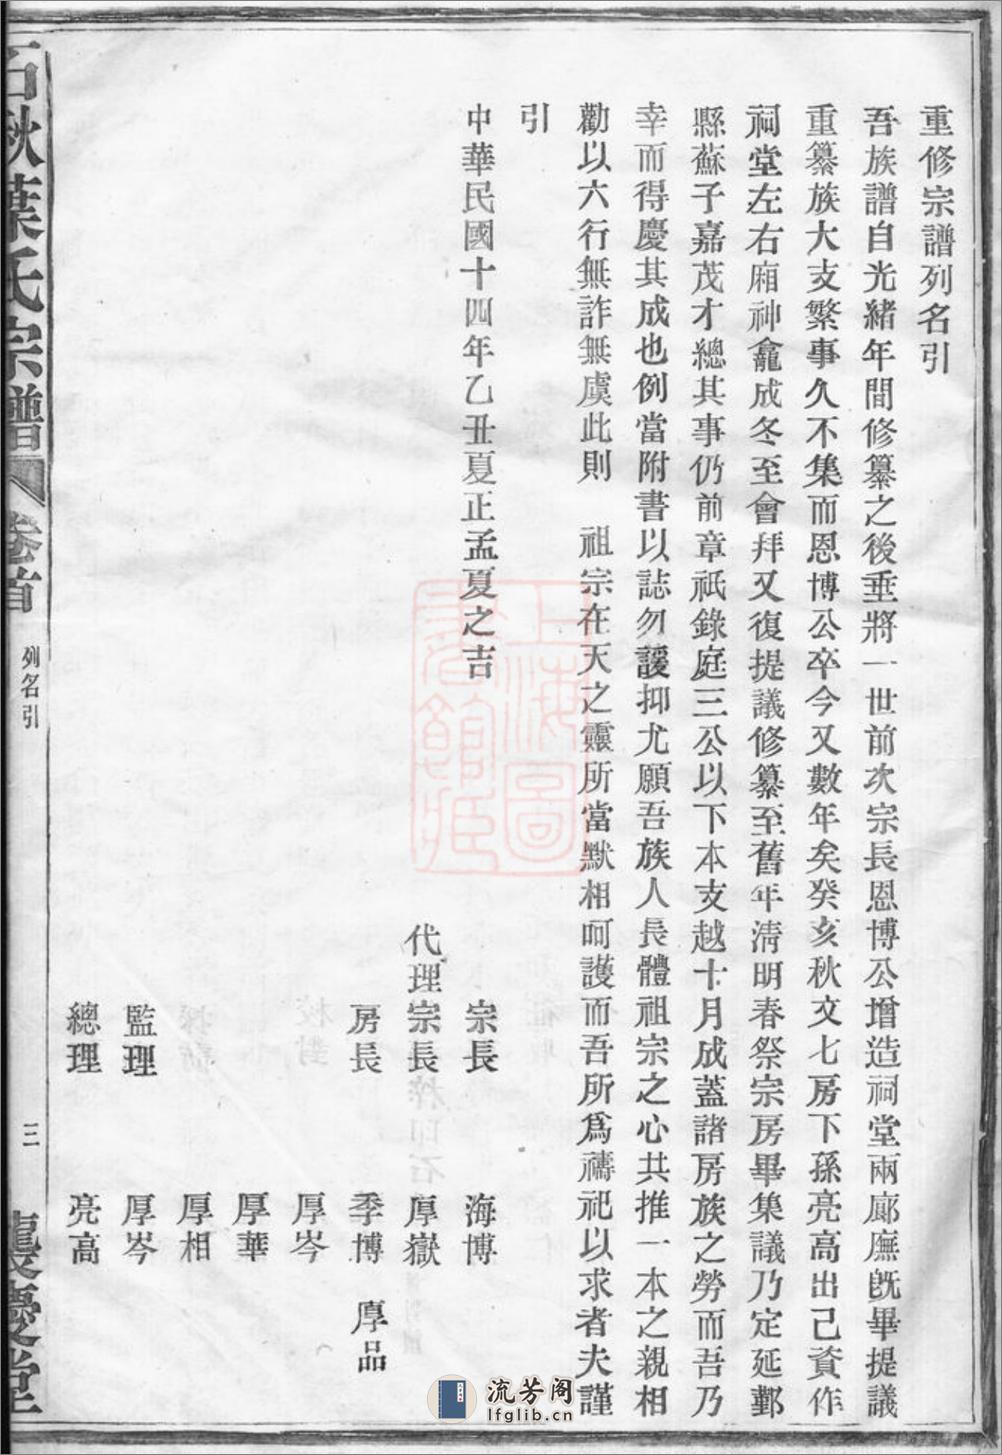 重修宗譜列名引
吾族譜自光緒年間修纂之後垂將一世前次宗長恩博公增造祠堂兩廊廡旣畢提議
重纂族大支繁事久不集而恩博公卒今又數年矣癸亥秋文七房下孫亮高出己資作
祠堂左右廂神龕成冬至會拜又復提議修纂至舊年淸明春祭宗房畢集議乃定延鄞
縣蘇子嘉茂才總其事仍前章祇錄庭三公以下本支越十月成蓋諸房族之勞而吾乃
幸而得慶其成也例當附書以誌勿諼抑尤願吾族人長體祖宗之心共推一本之親相
勸以六行無詐無虞此則　祖宗在天之靈所當默相呵護而吾所爲禱祀以求者夫謹
引
中華民國十四年乙丑夏正孟夏之吉
宗長　海博
代理宗長　厚嶽
房長　季博　厚品
厚岑
厚華
厚相
監理　厚岑
總理　亮高
石秋葉氏宗譜　卷首　列名引　三　襲慶堂
上海圖書館藏
流芳阁
lfglib.cn